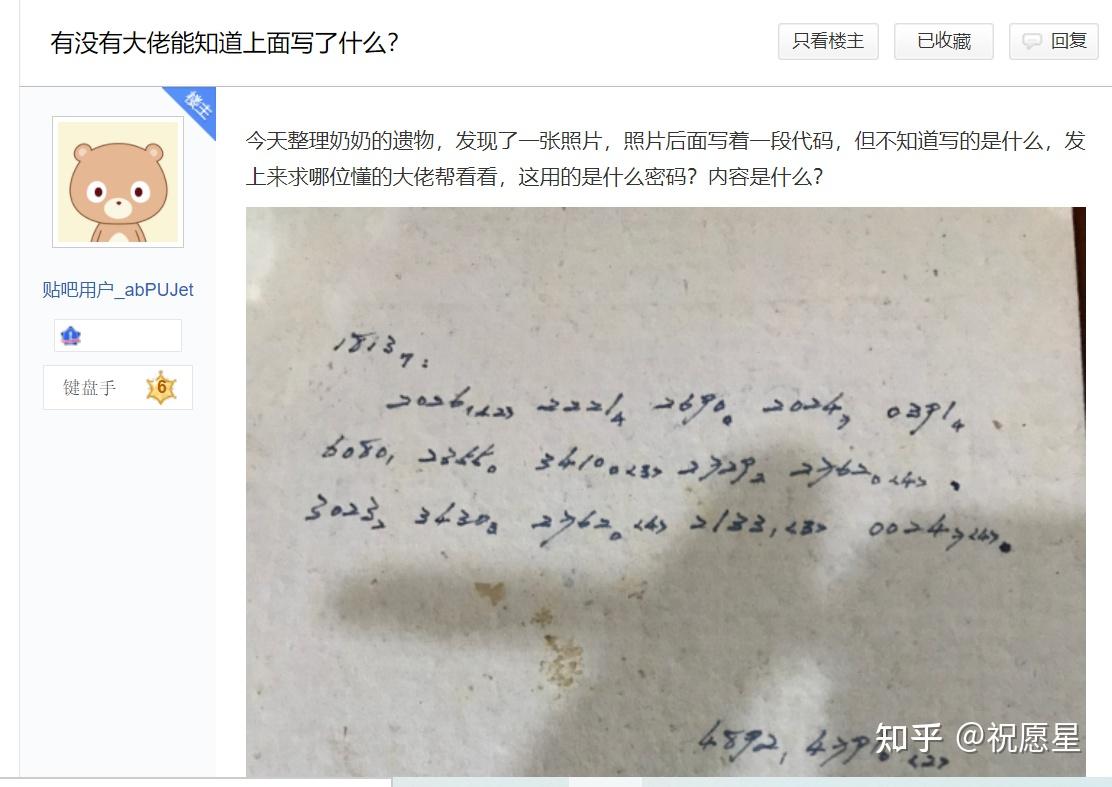 有没有大佬能知道上面写了什么？
只看楼主
已收藏
回复
楼主
今天整理奶奶的遗物，发现了一张照片，照片后面写着一段代码，但不知道写的是什么，发
上来求哪位懂的大佬帮看看，这用的是什么密码？内容是什么？
贴吧用户_abPUJet
键盘手 6
1813₇：
2026₁<2> 2221₄ 2690₀ 2024₇ 0391₄
6080₁ 2366₀ 3410₀<3> 2729₂ 2762₀<4>.
3023₂ 3430₃ 2762₀<4> 2133₁<3> 0024₇<4>.
4892₁
知乎 @祝愿星